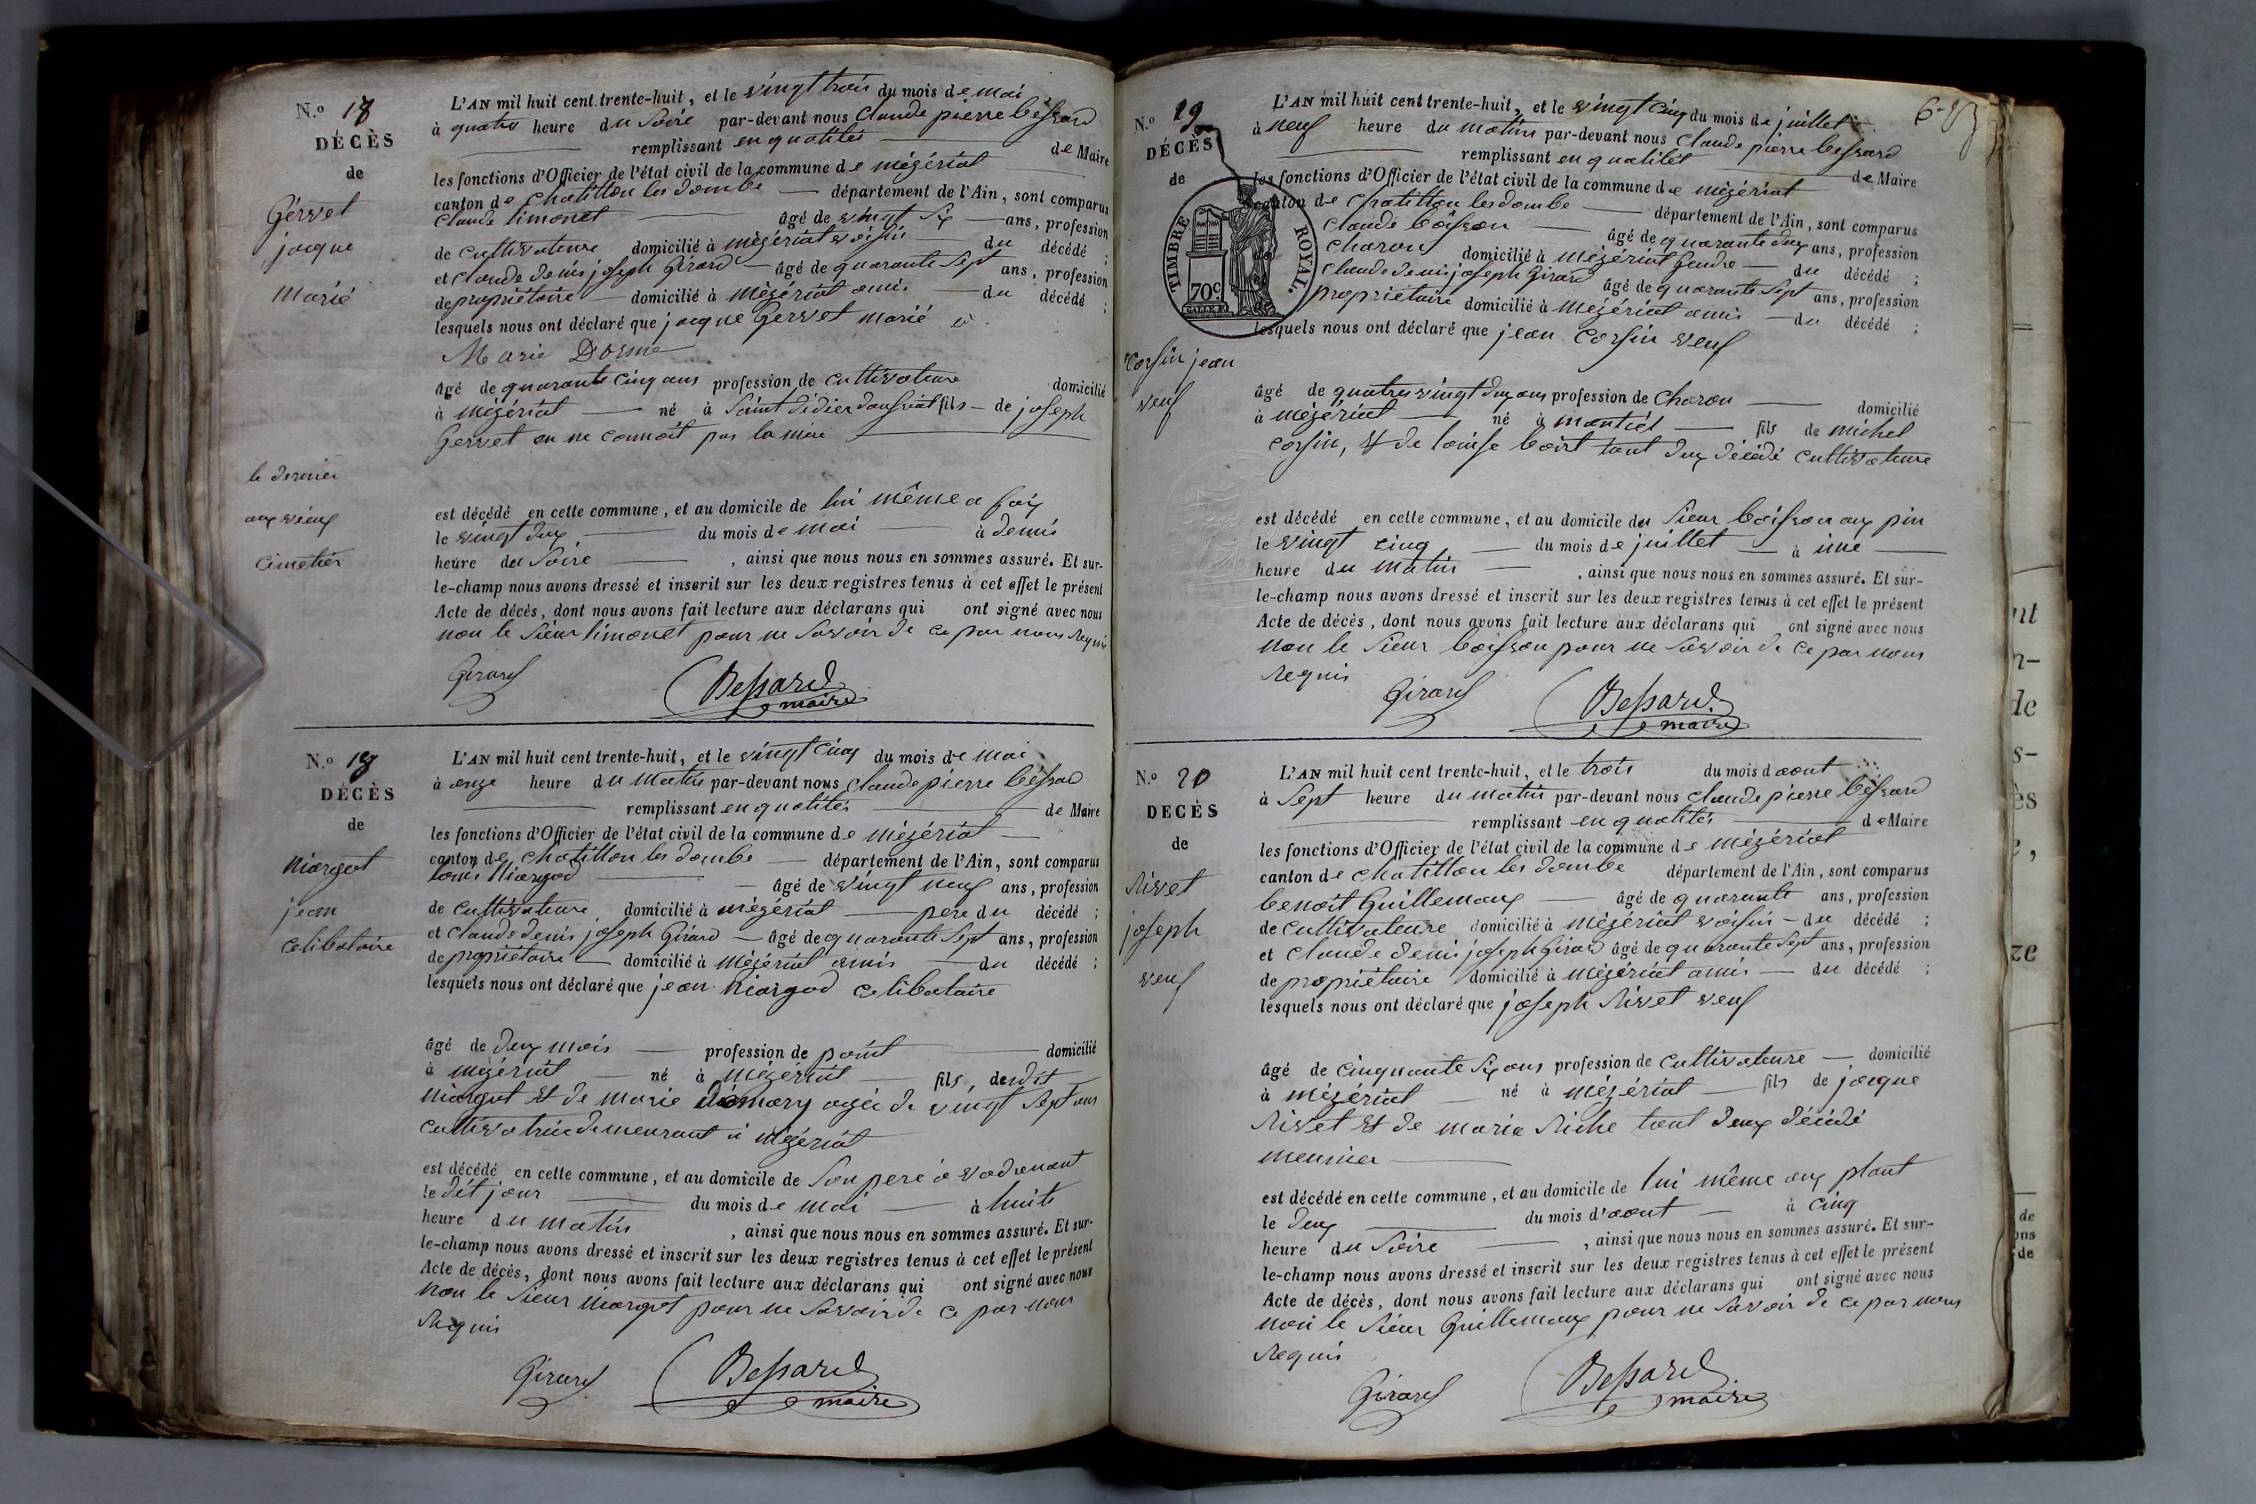 N.º 17
DÉCÈS
de
Gervet
jacque
marié
le dernier
aux vieux
cimetier
L'AN mil huit cent trente-huit, et le vingt trois du mois de mai
à quatre heure du soire par-devant nous Claude pierre bessard
remplissant en qualités de Maire
les fonctions d'Officier de l'état civil de la commune de mézériat
canton de chatillon les dombe département de l'Ain, sont comparus
Claude limonet âgé de vingt six ans, profession
de cultivateure domicilié à mézériat voisin du décédé ;
et Claude denis joseph Girard âgé de quarante sept ans, profession
de propriétaire domicilié à mézériat amis du décédé ;
lesquels nous ont déclaré que jacque Gervet marié à
Marie Dorme
âgé de quarante cinq ans profession de cultivateure domicilié
à mézériat né à Saint didier daussiat fils de joseph
Gervet on ne connoit pas la mère
est décédé en cette commune, et au domicile de lui même a
le vingt deux du mois de mai à demis
heure du soire , ainsi que nous nous en sommes assuré. Et sur-
le-champ nous avons dressé et inscrit sur les deux registres tenus à cet effet le présent
Acte de décès, dont nous avons fait lecture aux déclarans qui ont signé avec nous
non le sieur limonet pour ne savoir de ce par nous requis
Girard Bessard
maire
N.º 18
DÉCÈS
de
Niargot
jean
celibataire
L'AN mil huit cent trente-huit, et le vingt cinq du mois de mai
à onze heure du matin par-devant nous Claude pierre bessard
remplissant en qualités de Maire
les fonctions d'Officier de l'état civil de la commune de mézériat
canton de chatillon les dombe département de l'Ain, sont comparus
louis Niargod âgé de vingt neuf ans, profession
de cultivateure domicilié à mézériat pere du décédé ;
et Claude denis joseph Girard âgé de quarante sept ans, profession
de propriétaire domicilié à mézériat amis du décédé ;
lesquels nous ont déclaré que jean Niargod celibataire
âgé de deux mois profession de point domicilié
à mézériat né à mézériat fils, du dit
Niargot et de marie agée de vingt sept ans
cultivatrice demeurant à mézériat
est décédé en cette commune, et au domicile de son pere à vadrenant
le dit jour du mois de mai à huite
heure du matin , ainsi que nous nous en sommes assuré. Et sur-
le-champ nous avons dressé et inscrit sur les deux registres tenus à cet effet le présent
Acte de décès, dont nous avons fait lecture aux déclarans qui ont signé avec nous
non le sieur Niargot pour ne savoir de ce par nous
requis
Girard Bessard
maire
N.º 19
DÉCÈS
de
TIMBRE ROYAL.
70c
corsin jean
veuf
L'AN mil huit cent trente-huit, et le vingt cinq du mois de juillet
à neuf heure du matin par-devant nous Claude pierre bessard
remplissant en qualités de Maire
les fonctions d'Officier de l'état civil de la commune de mézériat
canton de chatillon les dombe département de l'Ain, sont comparus
Claude boisson âgé de quarante deux ans, profession
charon domicilié à mézériat Gendre du décédé ;
Claude denis joseph Girard âgé de quarante sept ans, profession
propriétaire domicilié à mézériat amis du décédé ;
lesquels nous ont déclaré que jean corsin veuf
âgé de quatre vingt deux ans profession de charon domicilié
à mézériat né à montiel fils de michel
corsin, et de louise tout deux décédé cultivateure
est décédé en cette commune, et au domicile du sieur boisson aux pin
le vingt cinq du mois de juillet à une
heure du matin , ainsi que nous nous en sommes assuré. Et sur-
le-champ nous avons dressé et inscrit sur les deux registres tenus à cet effet le présent
Acte de décès, dont nous avons fait lecture aux déclarans qui ont signé avec nous
non le sieur boisson pour ne savoir de ce par nous
requis
Girard Bessard
maire
N.º 20
DÉCÈS
de
Rivet
joseph
veuf
L'AN mil huit cent trente-huit, et le trois du mois d'aout
à sept heure du matin par-devant nous Claude pierre bessard
remplissant en qualités de Maire
les fonctions d'Officier de l'état civil de la commune de mézériat
canton de chatillon les dombe département de l'Ain, sont comparus
benoit Guillemaux âgé de quarante ans, profession
de cultivateure domicilié à mézériat voisin du décédé ;
et Claude denis joseph Girard âgé de quarante sept ans, profession
de propriétaire domicilié à mézériat amis du décédé ;
lesquels nous ont déclaré que joseph Rivet veuf
âgé de cinquante six ans profession de cultivateure domicilié
à mézériat né à mézériat fils de jacque
Rivet et de marie Riche tout deux décédé
meunier
est décédé en cette commune, et au domicile de lui même aux plant
le deux du mois d'aout à cinq
heure du soire , ainsi que nous nous en sommes assuré. Et sur-
le-champ nous avons dressé et inscrit sur les deux registres tenus à cet effet le présent
Acte de décès, dont nous avons fait lecture aux déclarans qui ont signé avec nous
non le sieur Guillemaux pour ne savoir de ce par nous
requis
Girard Bessard
maire